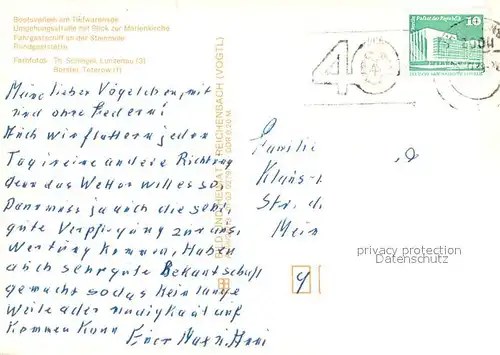 Bootsverleih am Tiefwarensee
Umgehungsstraße mit Blick zur Marienkirche
Fahrgastschiff an der Steinmole
Rundgaststätte
Fotos: Th. Schlegel, Lunzenau (3)
Bersler, Teterow (1)
Meine lieben Vögelchen, mit
und ohne Federn!
Auch wir flattern jeden
Tag in eine andere Richtung
denn das Wetter will es so,
Dann muss ja auch die sehr
gute Verpflegung zur aus
Wertung kommen, Haben
auch sehr gute Bekantschaft
gemacht so das kein lange
weile oder müdigkeit auf
kommen kann
Euer Max u. Anni
BILD UND HEIMAT REICHENBACH (VOGTL)
DDR 0,20 M
40
Palast der Republik
10
Familie
Klaus-
Str. d.
Mein
privacy protection
Datenschutz
4